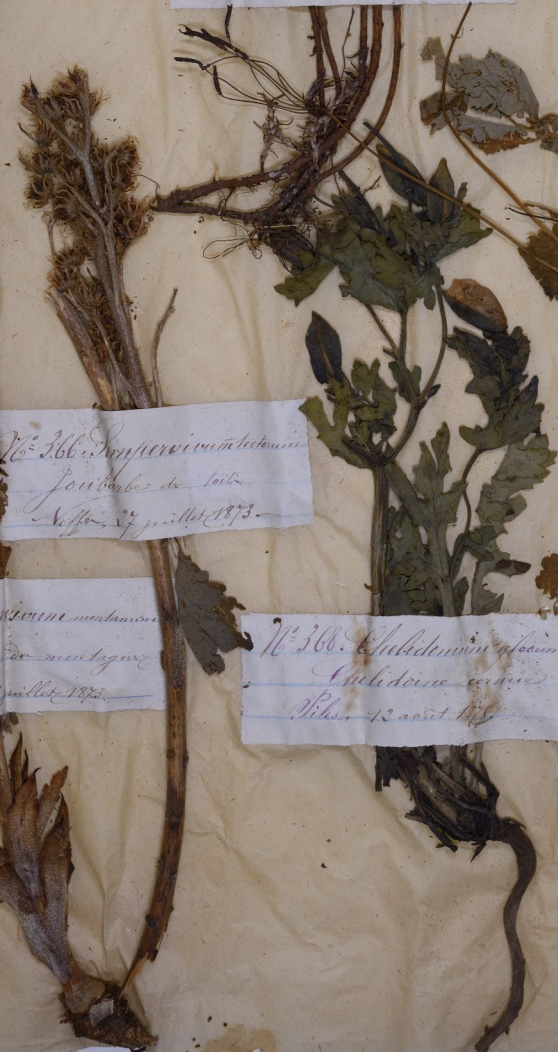 Nº 366. Sempervivum tectorum
Joubarbe de toits
27 juillet 1873.
montanum
de montagne
juillet 1873
Nº 368. Chelidonium glaucium
Chelidoine cornue
12 août